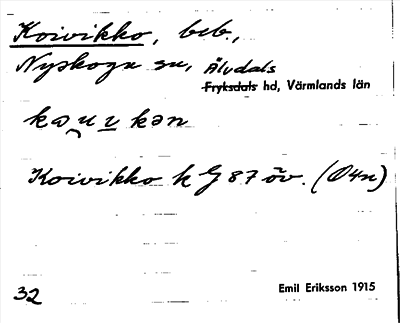 Koivikko, beb.,
Nyskoga sn, Älvdals
Fryksdals hd, Värmlands län
Koivikko k G 87 öv. (Ö4n)
32
Emil Eriksson 1915